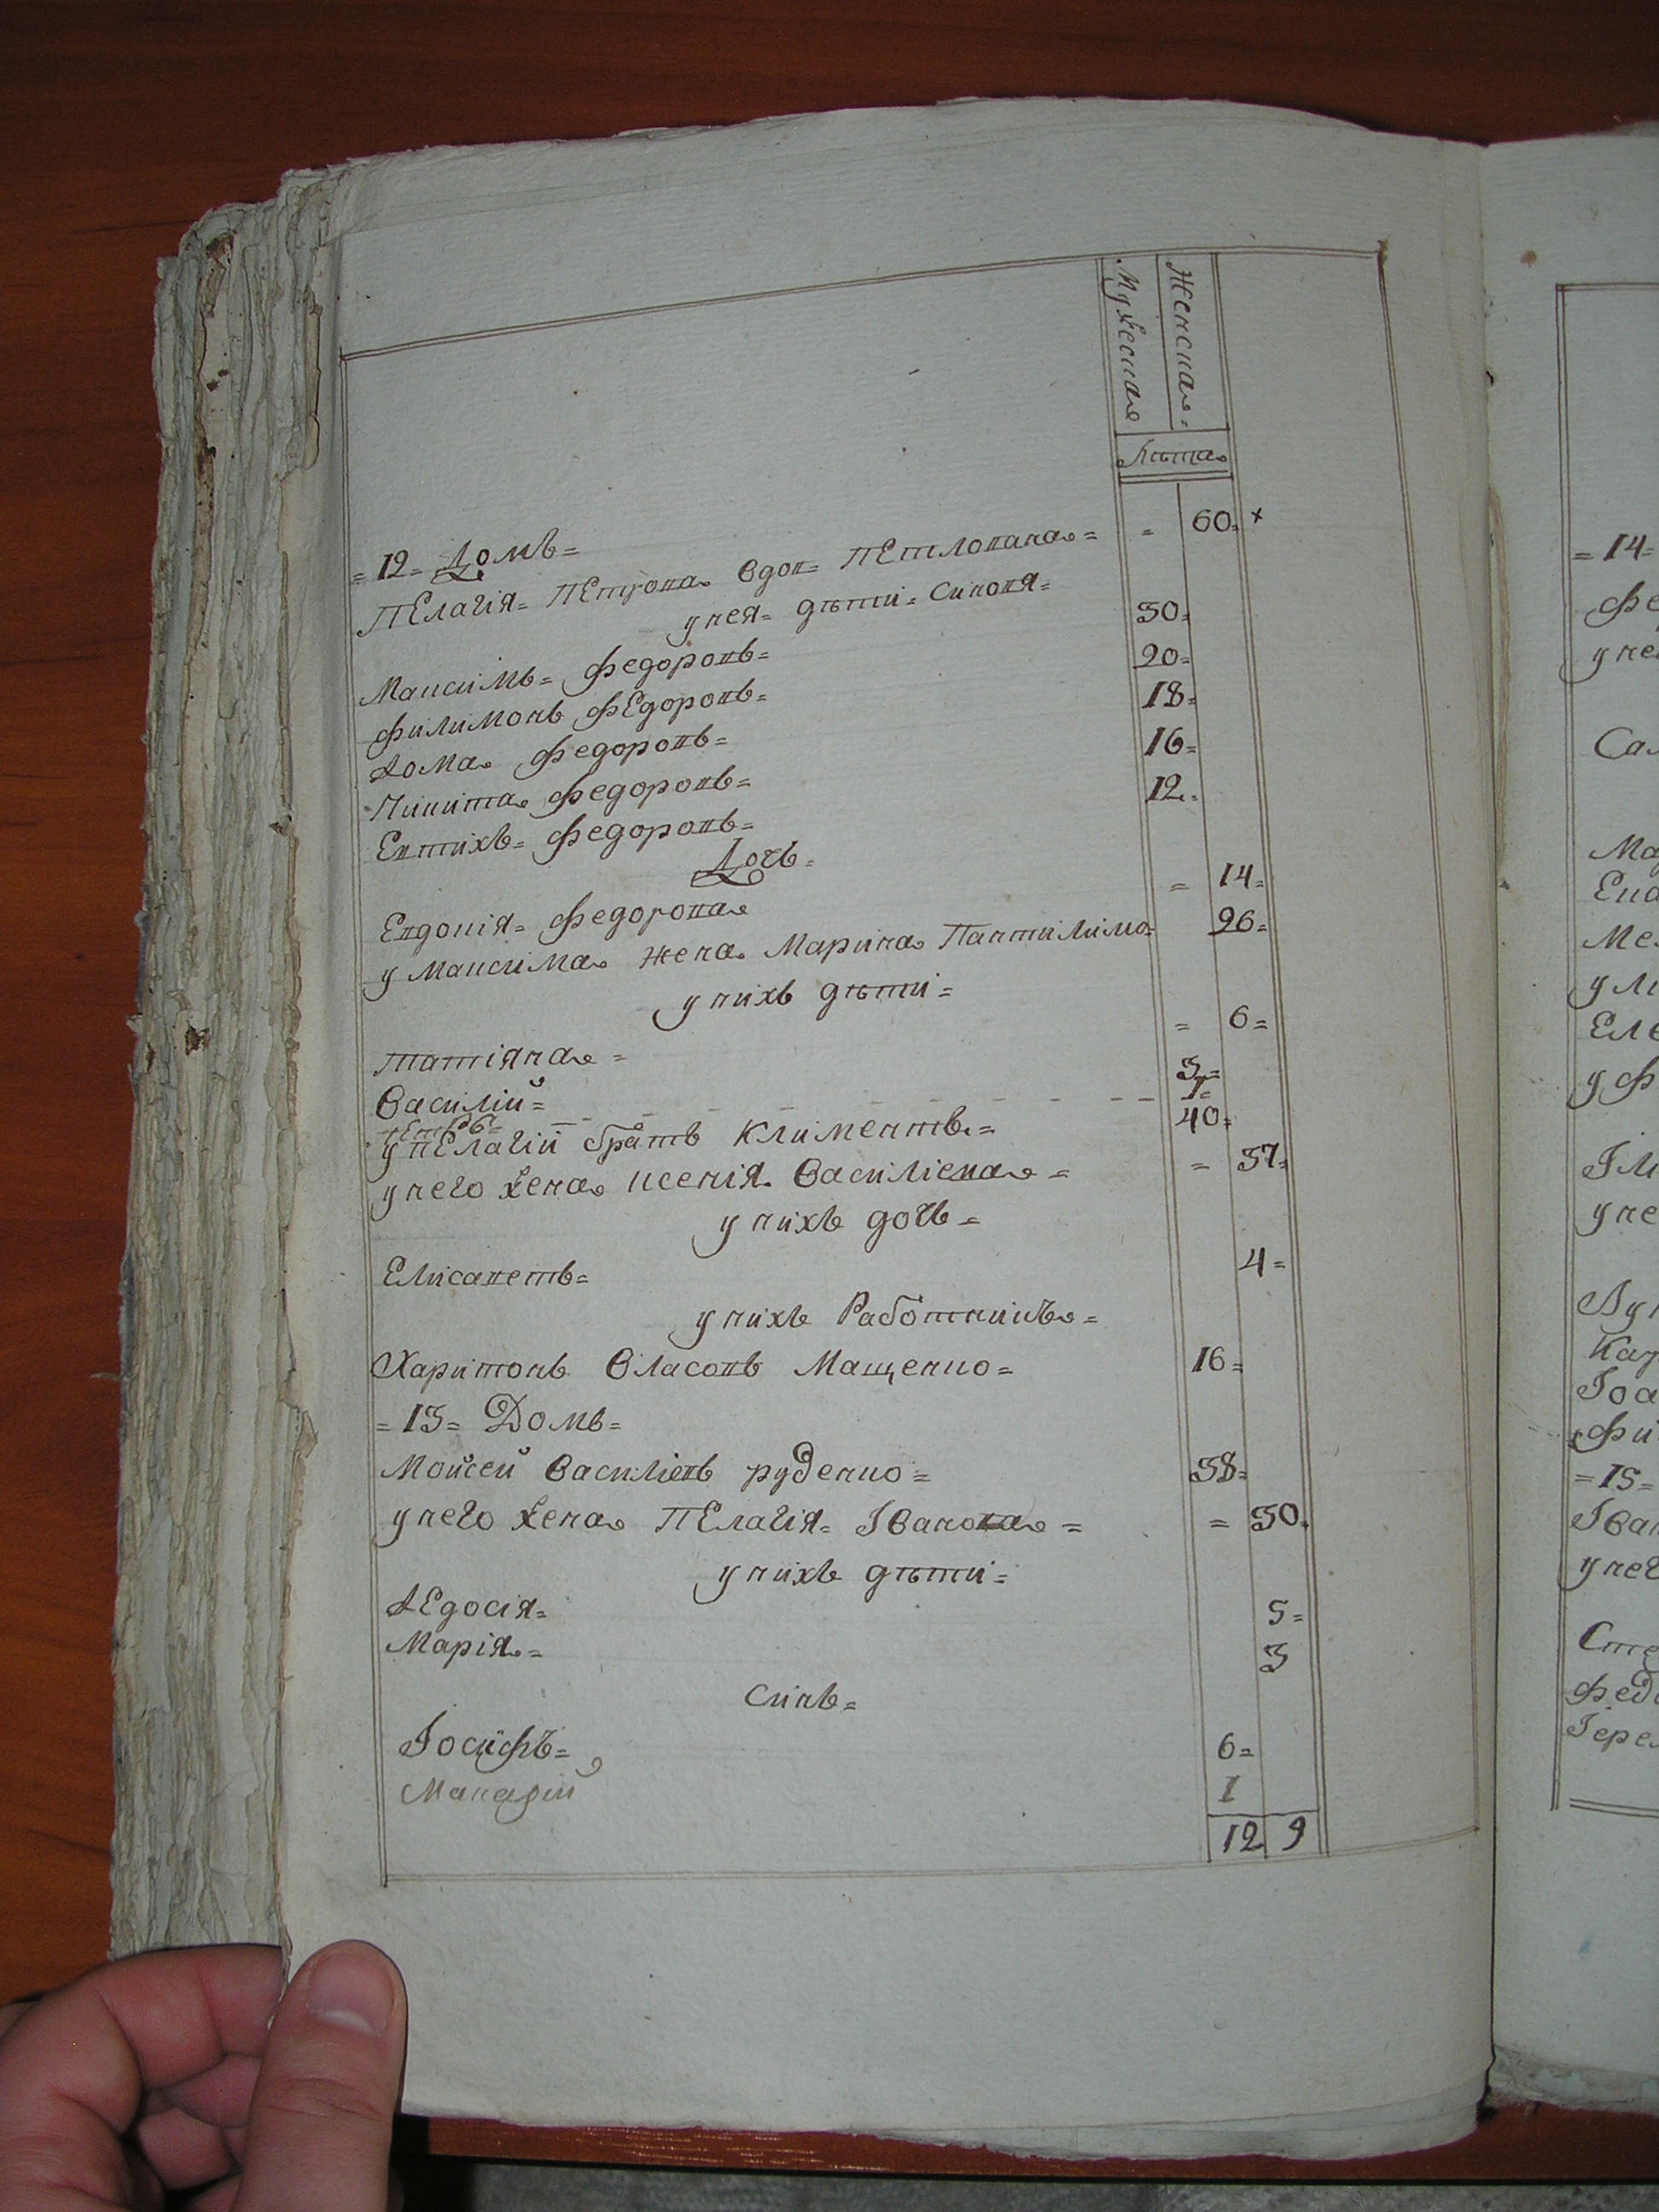 Мужеская
Женская=
Лѣта
=12= Домъ=
Пелагія= Петрова Вдов= Петлована= = 60= ×
у нея= дѣти= Синовя=
Максимъ= Федоровъ= 30=
Филимонъ Федоровъ= 20=
Фома Федоровъ= 18=
Никита Федоровъ= 16=
Евтихъ= Федоровъ= 12=
Дочь=
Евдокія= Федорова = 14=
у Максима жена Марина Пантилимо= 26=
у нихъ дѣти=
татіяна= = 6=
Василій= 3=
Петръ= 1=
у Пелагіи братъ Климентъ= 40=
у него жена ксенія Василіева= = 37=
у нихъ дочь=
Елисаветъ= 4=
у нихъ Работникъ=
Харитонъ Власовъ Мащенко= 16=
=13= Домъ=
Мойсей Василіевъ руденко= 38=
у него жена Пелагія= Іванова= = 30=
у нихъ дѣти=
Федосія= 5=
Марія= 3
Синъ=
Іосифъ= 6=
Макарій 1
12 9
=14=
Фе
у не
Са
Ма
Ека
Ме
у
Еле
у Ф
у не
Іоа
Фи
=15=
Іван
у нег
Сте
Фед
Іере